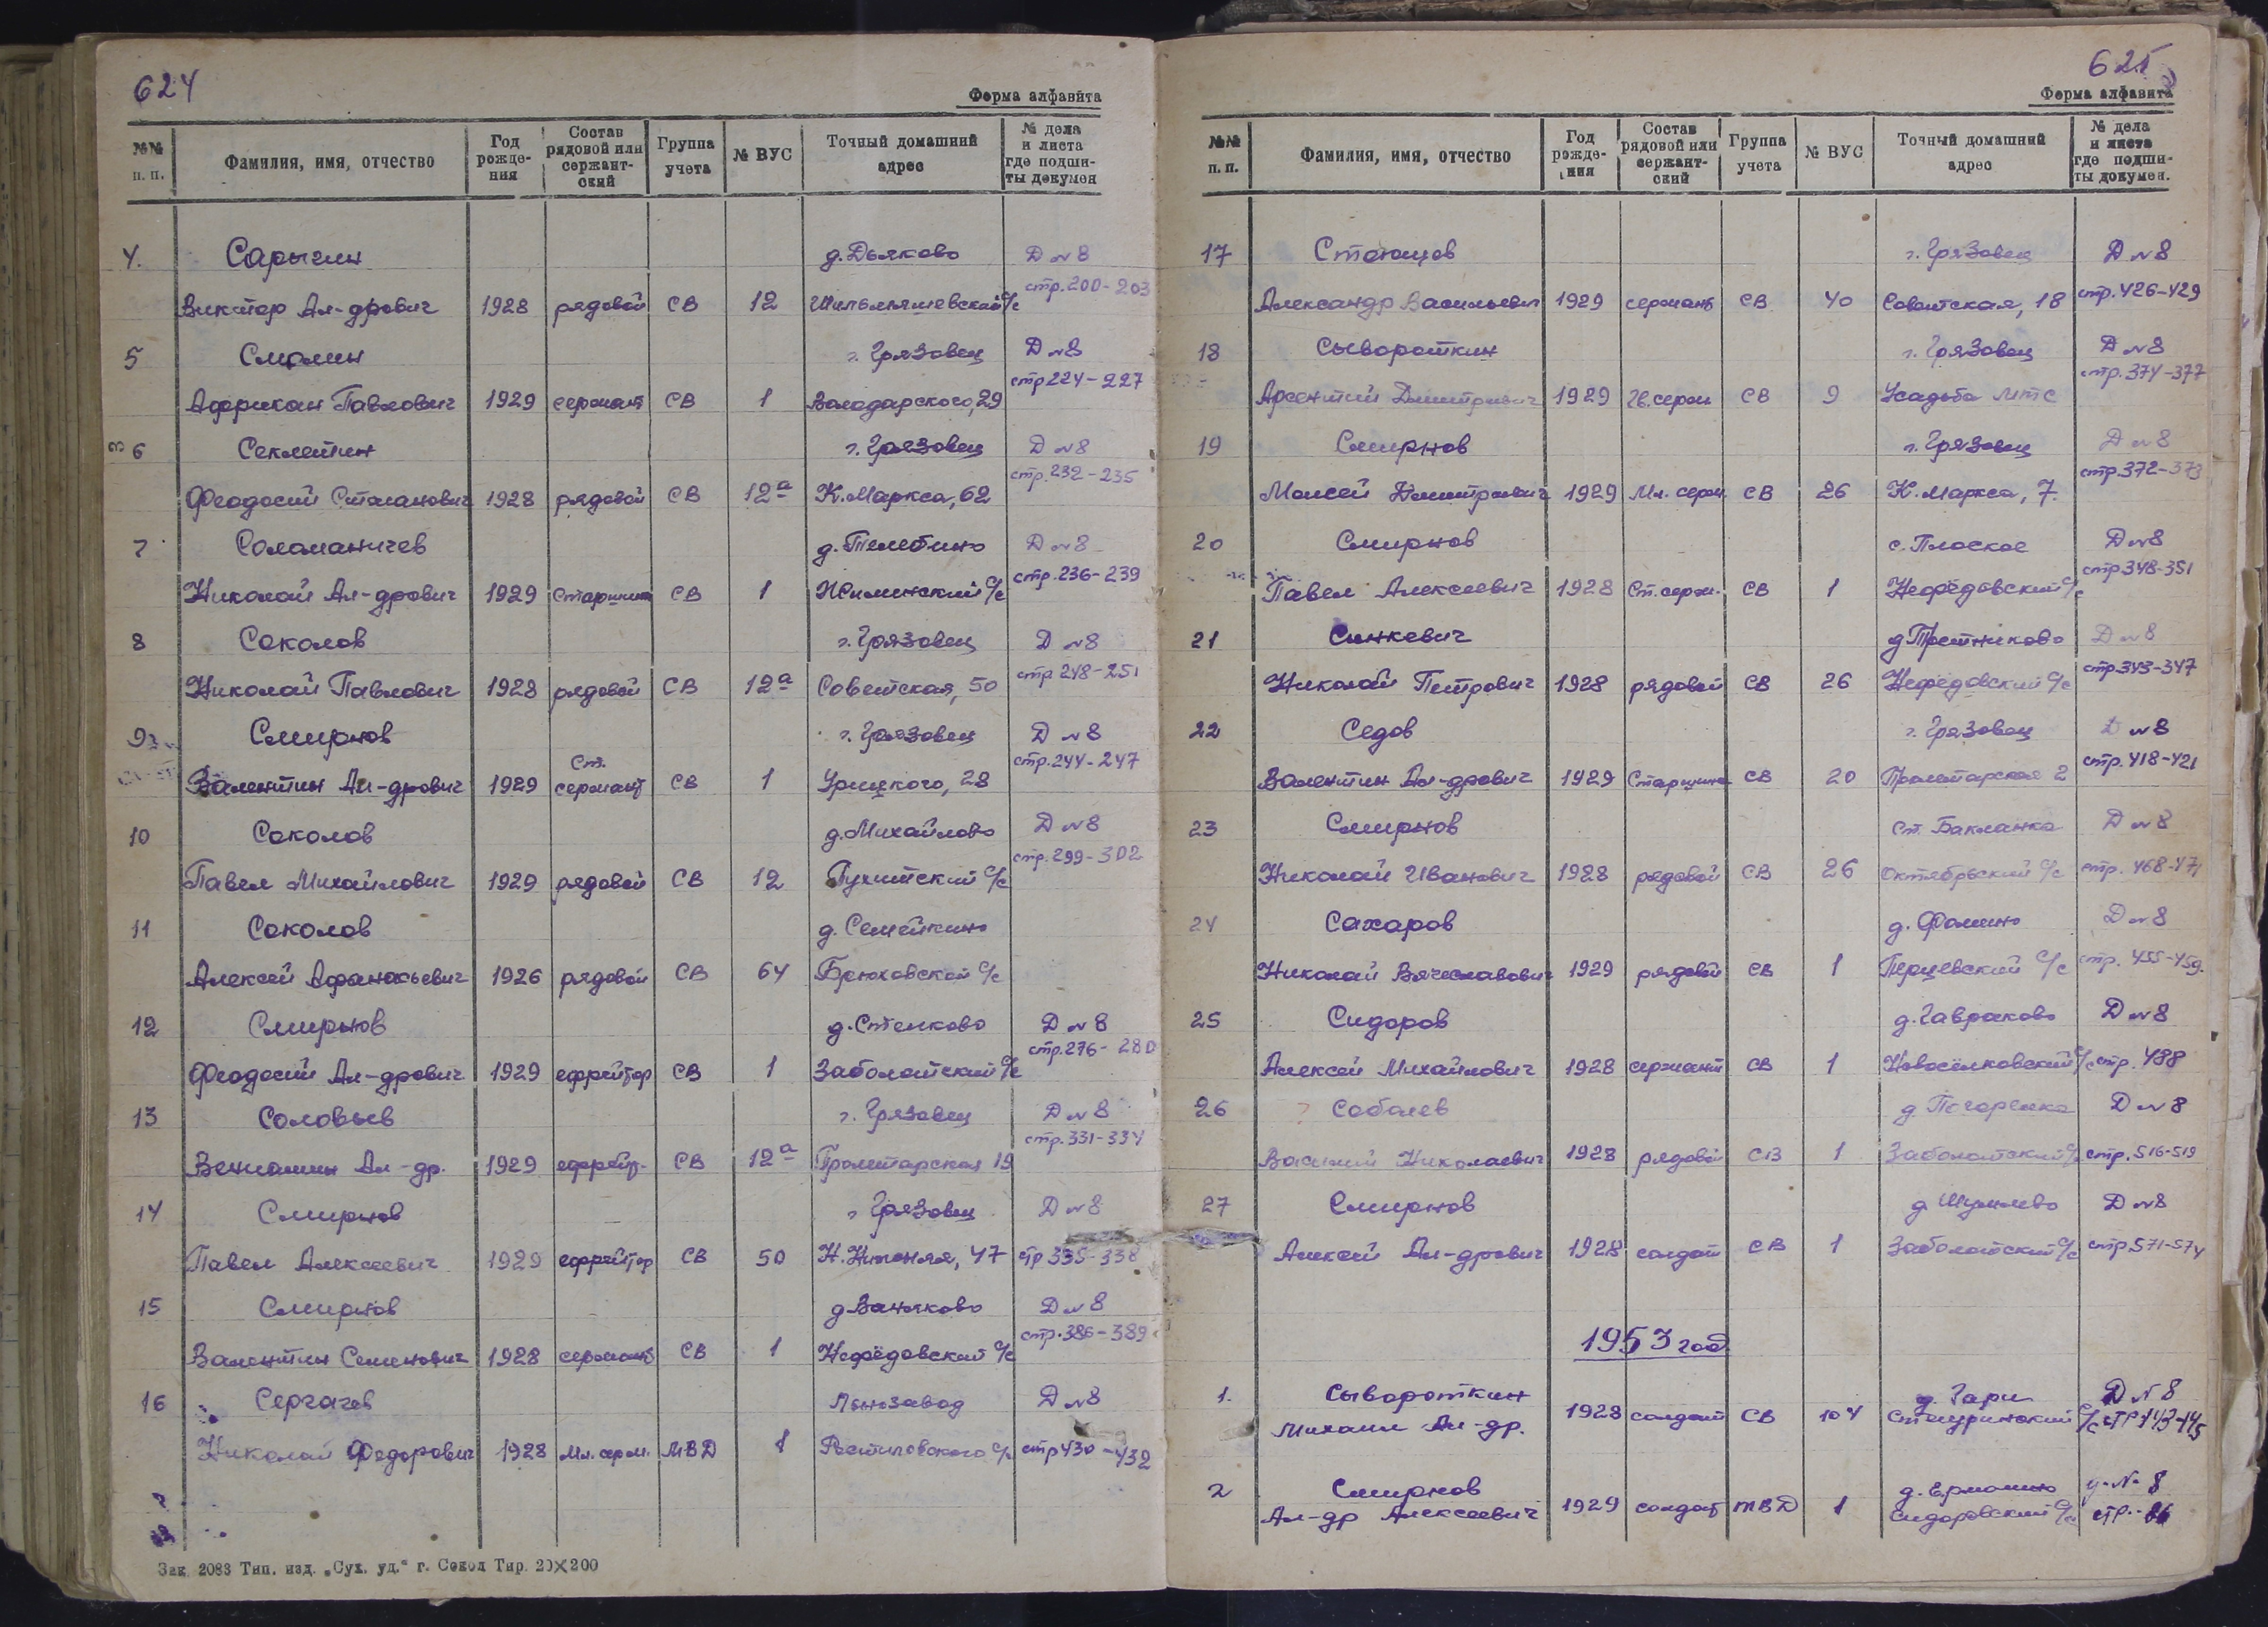 624
Форма алфавита
№№ п. п. Фамилия, имя, отчество Год рожде- ния Состав рядовой или сержант- ский Группа учета № ВУС Точный домашний адрес № дела и листа где подши- ты докумен
4. Сарыгин д. Дьяково Д №8
Виктор Ал-дрович 1928 рядовой СВ 12 с/с стр. 200-203
5 Смолин г. Грязовец Д №8
Африкан Павлович 1929 сержант СВ 1 Володарского, 29 стр 224-227
6 Секлетин г. Грязовец Д №8
Феодосий Степанович 1928 рядовой СВ 12а К. Маркса, 62 стр. 232-235
7 Соломаничев д. Телебино Д №8
Николай Ал-дрович 1929 старшина СВ 1 с/с стр. 236-239
8 Соколов г. Грязовец Д №8
Николай Павлович 1928 рядовой СВ 12а Советская, 50 стр 248-251
9 Смирнов г. Грязовец Д №8
Валентин Ал-дрович 1929 Ст. сержант СВ 1 Урицкого, 28 стр. 244-247
10 Соколов д. Михайлово Д №8
Павел Михайлович 1929 рядовой СВ 12 с/с стр. 299-302
11 Соколов д. Семейкино
Алексей Афанасьевич 1926 рядовой СВ 64 с/с
12 Смирнов д. Степково Д №8
Феодосий Ал-дрович 1929 ефрейтор СВ 1 Заболотский с/с стр. 276-280
13 Соловьев г. Грязовец Д №8
Вениамин Ал-др. 1929 ефрейт. СВ 12а Пролетарская 19 стр. 331-334
14 Смирнов г. Грязовец Д №8
Павел Алексеевич 1929 ефрейтор СВ 50 47 стр 335-338
15 Смирнов д Ваньково Д №8
Валентин Семенович 1928 сержант СВ 1 Нефёдовский с/с стр. 386-389
16 Сергачев Льнозавод Д №8
Николай Федорович 1928 Мл. серж. МВД 1 Ростиловского с/с стр 430-432
Зак 2083 Тип. изд. „Сух. уд.“ г. Сокол Тир. 20×200
625
Форма алфавита
№№ п. п. Фамилия, имя, отчество Год рожде- ния Состав рядовой или сержант- ский Группа учета № ВУС Точный домашний адрес № дела и листа где подши- ты докумен.
17 г. Грязовец Д №8
Александр Васильевич 1929 сержант СВ 40 Советская, 18 стр. 426-429
18 Сывороткин г. Грязовец Д №8
Арсентий Дмитриевич 1929 Гв. серж СВ 9 Усадьба МТС стр. 374-377
19 Смирнов г. Грязовец Д №8
Моисей Дмитриевич 1929 Мл. серж СВ 26 К. Маркса, 7. стр. 372-373
20 Смирнов с. Плоское Д №8
Павел Алексеевич 1928 Ст. серж. СВ 1 Нефёдовский с/с стр 348-351
21 Синкевич Д №8
Николай Петрович 1928 рядовой СВ 26 Нефёдовский с/с стр. 343-347
22 Седов г. Грязовец Д №8
Валентин Ал-дрович 1929 Старшина СВ 20 Пролетарская 2 стр. 418-421
23 Смирнов ст. Бакланка Д №8
Николай Иванович 1928 рядовой СВ 26 Октябрьский с/с стр. 468-471
24 Сахаров д. Фомино Д №8
Николай Вячеславович 1929 рядовой СВ 1 Перцевский с/с стр. 455-459.
25 Сидоров д. Гавраково Д №8
Алексей Михайлович 1928 сержант СВ 1 Новосёлковский с/с стр. 488
26 Соболев Д №8
Василий Николаевич 1928 рядовой СВ 1 Заболотский с/с стр. 516-519
27 Смирнов д Шумлево Д №8
Алексей Ал-дрович 1928 солдат СВ 1 Заболотский с/с стр. 571-574
1953 год
1. Сывороткин д. Гари Д №8
Михаил Ал-др. 1928 солдат СВ 104 с/с стр 143-145
2 Смирнов д. Ермолино д. №8
Ал-др Алексеевич 1929 солдат МВД 1 Сидоровский с/с стр.